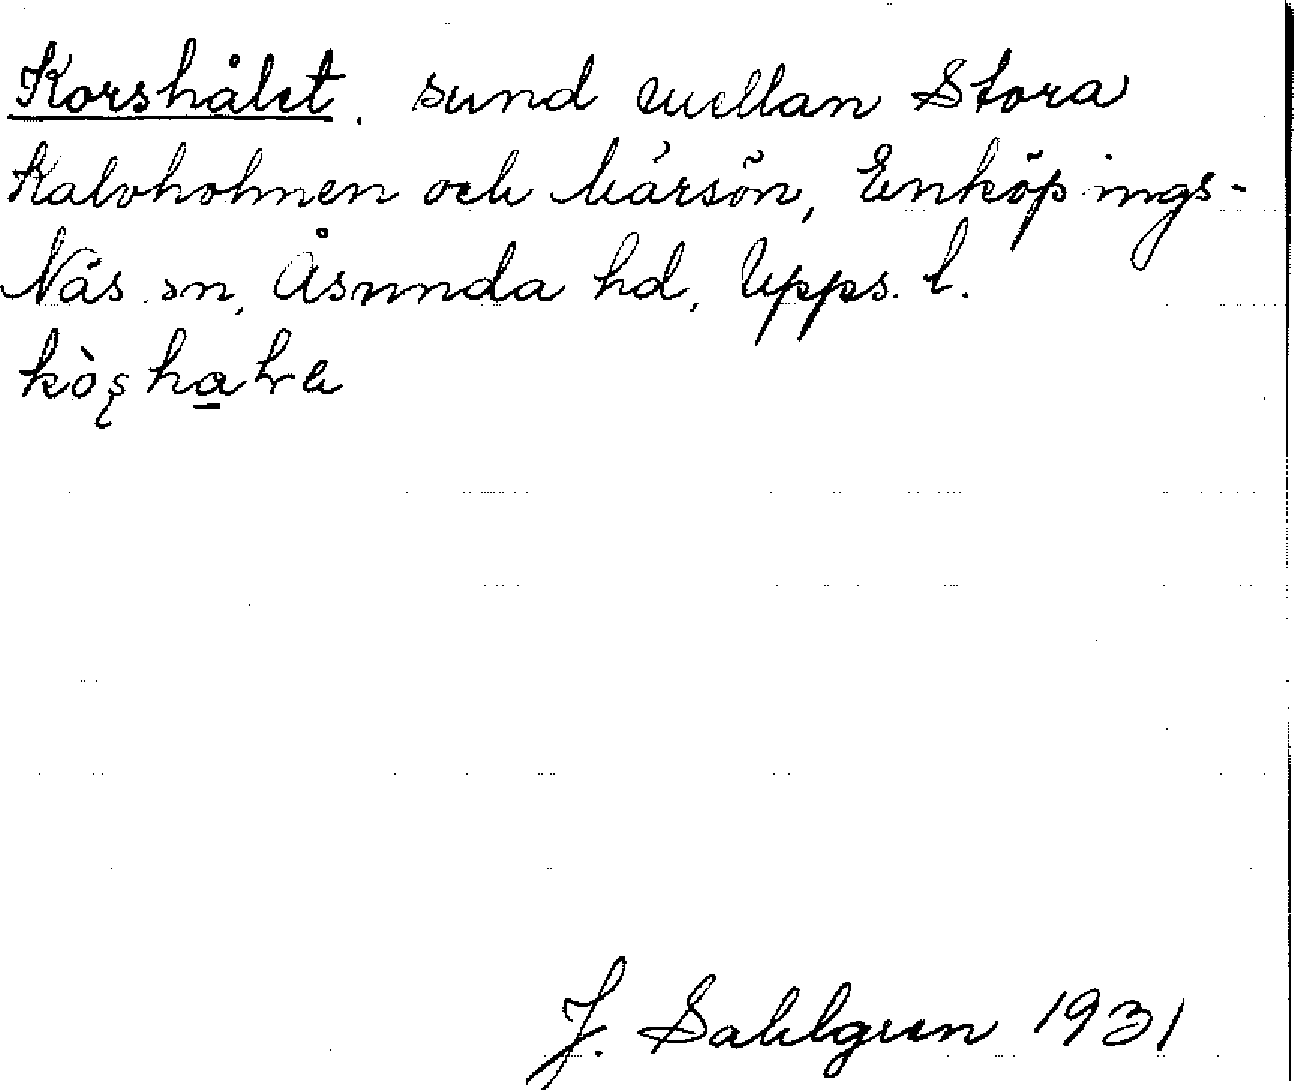 Korshålet, sund mellan Stora
Kalvholmen och Kårsön, Enköpings-
Näs sn, Åsunda hd, Upps. l.
J. Sahlgren 1931